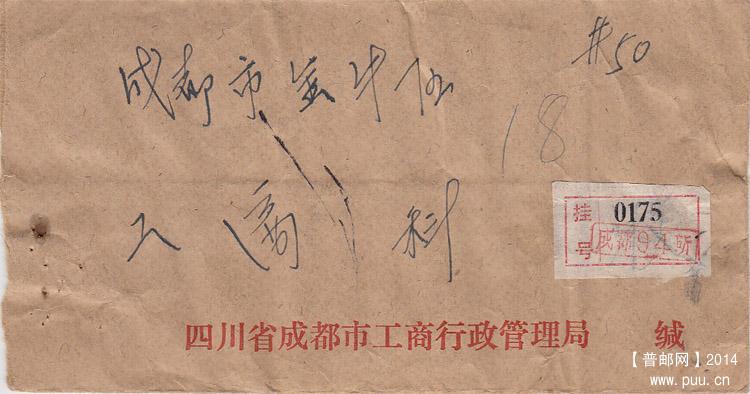 #50
成都市金牛区
18
工商科
挂号 0175
成都
四川省成都市工商行政管理局 缄
【普邮网】2014
www.puu.cn